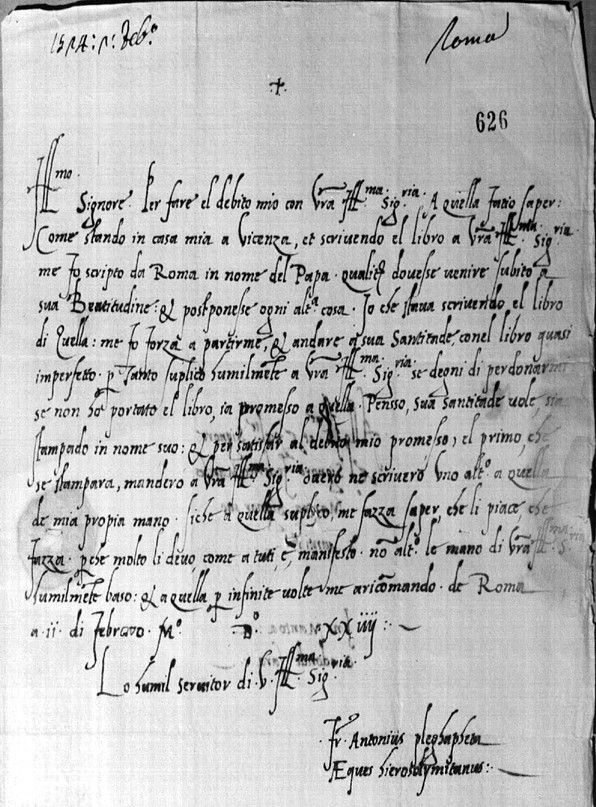 1524: p: febro
Roma
+
626
Illmo
Signore. Per fare el debito mio con Vra Illma Sigria. A quella fatio saper:
Come stando in casa mia a Vicenza, et scrivendo el libro a Vra Illma Sigria
me fo scripto da Roma in nome del Papa. qualiter dovesse venire subito a
sua Beatitudine: & postponesse ogni alta cosa. Io che stava scrivendo el libro
di Quella: me fo forza a partirme, & andare a sua Santitade, conel libro quasi
imperfetto. p tanto suplico humilmete a Vra Illma Sigria se degni di perdonarmi
se non ho portato el libro, ia promesso a quella. Pensso, sua Santitade vole, sia
stampado in nome suo: & per satisfar al debito mio promesso, el primo, che
se stampara, mandero a Vra Illma Sigria overo ne scrivero uno alto a quella
de mia propia mano. siche a quella suplico, me fazza saper che li piace, che
fazza. pche molto li devo, come a tuti e, manifesto. no alto. le mano di Vra Illma S.ria
humilmete baso: & a quella p infinite volte me aricomando. de Roma
a ii di febravo Mo Do XXiiij:
Lo humil servitor di V. Illma Sigria
Fr. Antonius pleghapheta
Æques hierosolymitanus: